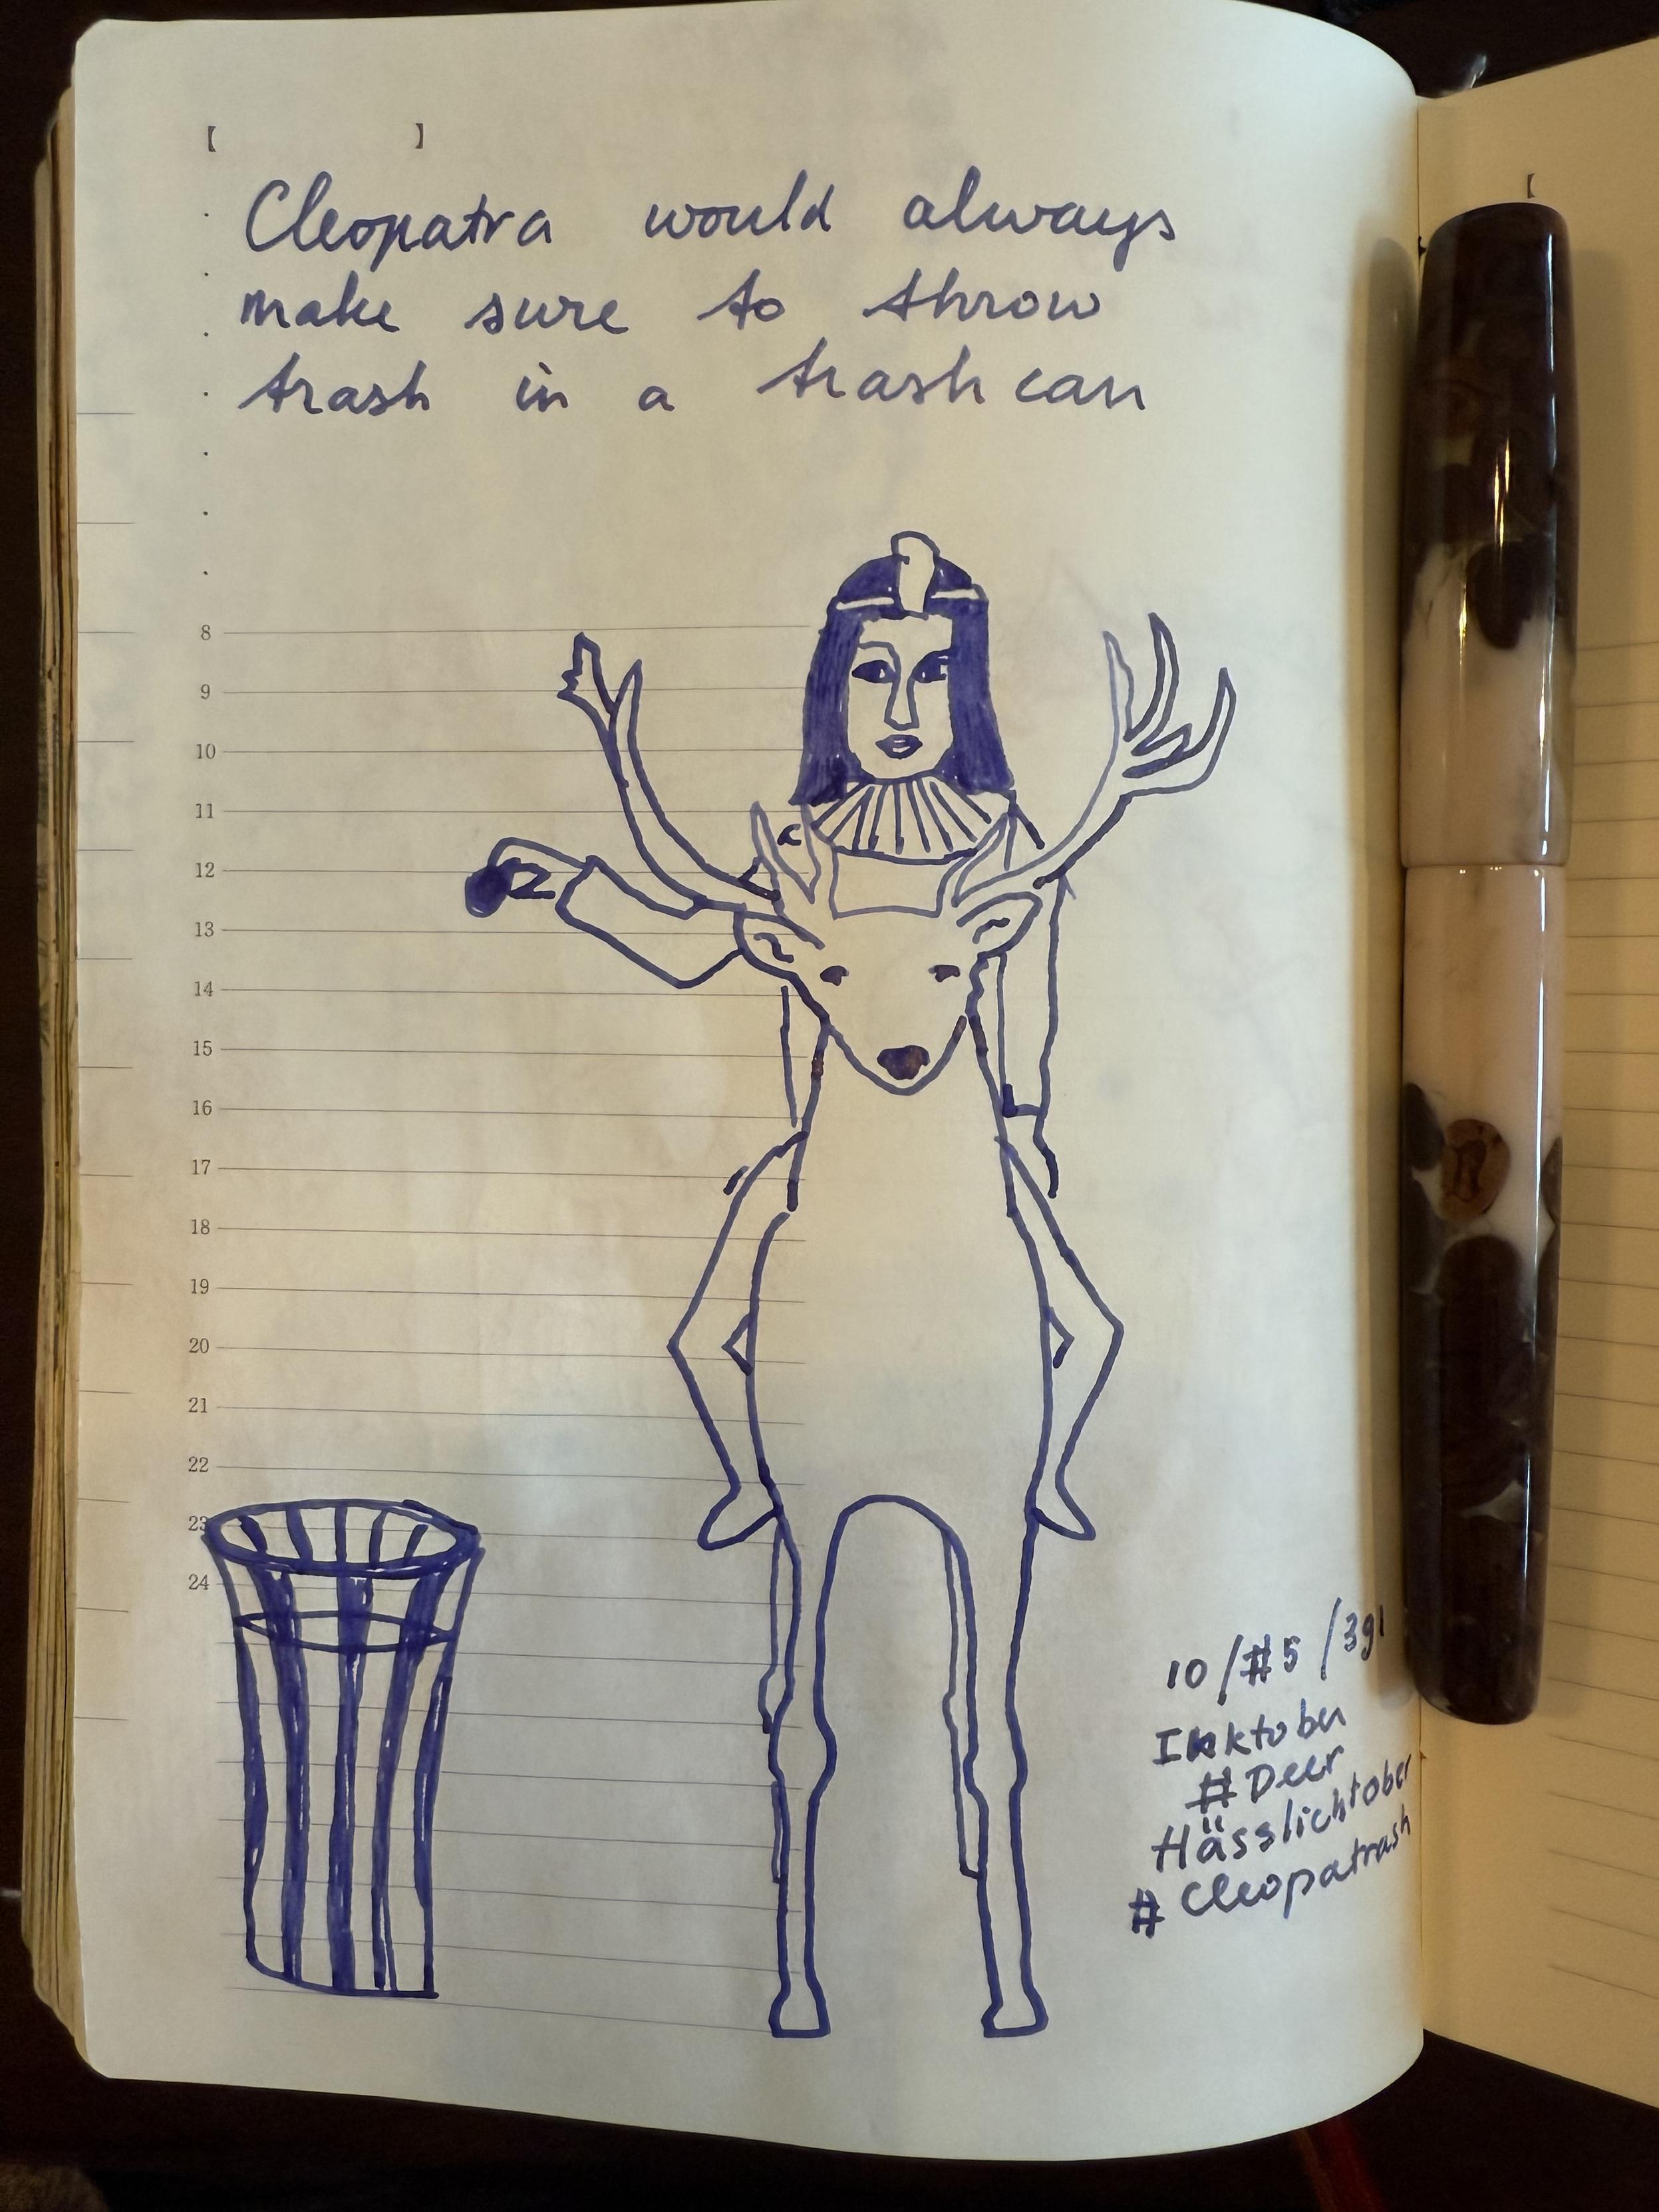 【 】
Cleopatra would always
make sure to throw
trash in a trash can
8
9
10
11
12
13
14
15
16
17
18
19
20
21
22
23
24
10/#5/391
Inktober
#Deer
Hässlichtober
#Cleopatrash
【